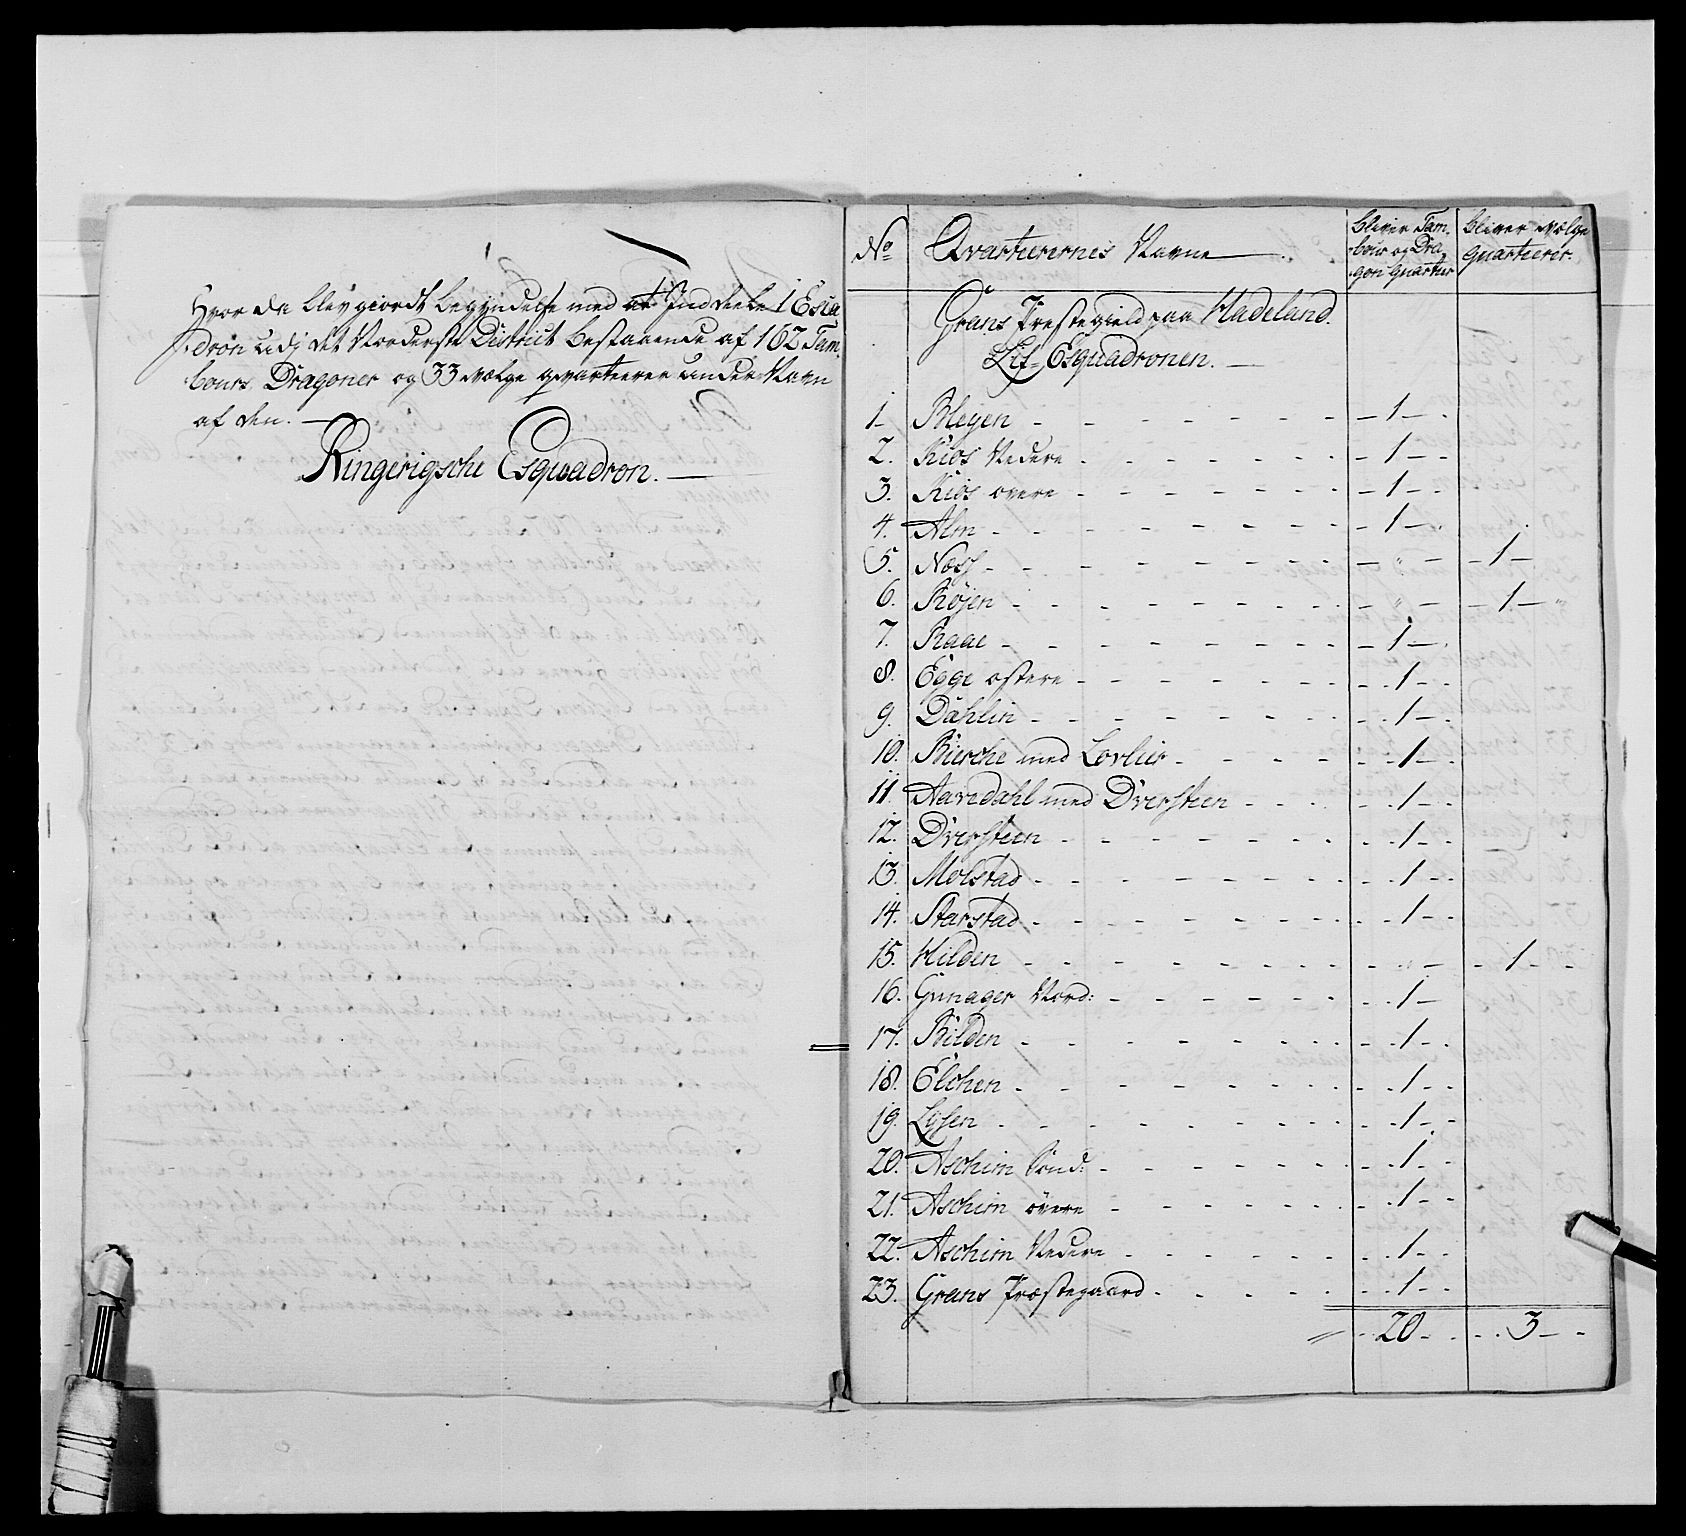 Hvor da blev giordt begyndelse med at Inddeele 1 Esqa
dron udj det Norderste District bestaaende af 162 Tam,
bours, Dragoner og 33 vælge qvarteerer under Navn
af den. —
Ringerigsche Esquadron. —
No Qvarteerernes Navne bliver Tam, bour og Dra, gon Quarteer bliver vælge Quarteerer.
Grans Prestegield paa Hadeland.
Lif-Esquadronen. —
1. Blegen - 1 -
2. Kios Nedere - 1 -
3. Kios overe - 1 -
4. Alm - 1 -
5. Næss - " - 1 -
6. Røjen - " - 1 -
7. Raae - 1 -
8. Egge østere - 1 -
9. Dahlin - 1 -
10. Bierche med Lovlier - 1 -
11. Aavedahl med Dversteen - 1 -
12. Dversteen - 1 -
13. Molstad - 1 -
14. Starstad - 1 -
15. Hilden - " - 1 -
16. Gunager Nord: - 1 -
17. Bilden - 1 -
18. Elchen - 1 -
19. Lysen - 1 -
20. Aschim Sönd: - 1 -
21. Aschim övere - 1 -
22. Aschim Nedere - 1 -
23. Grans Præstegaard - 1 -
20 - 3 -